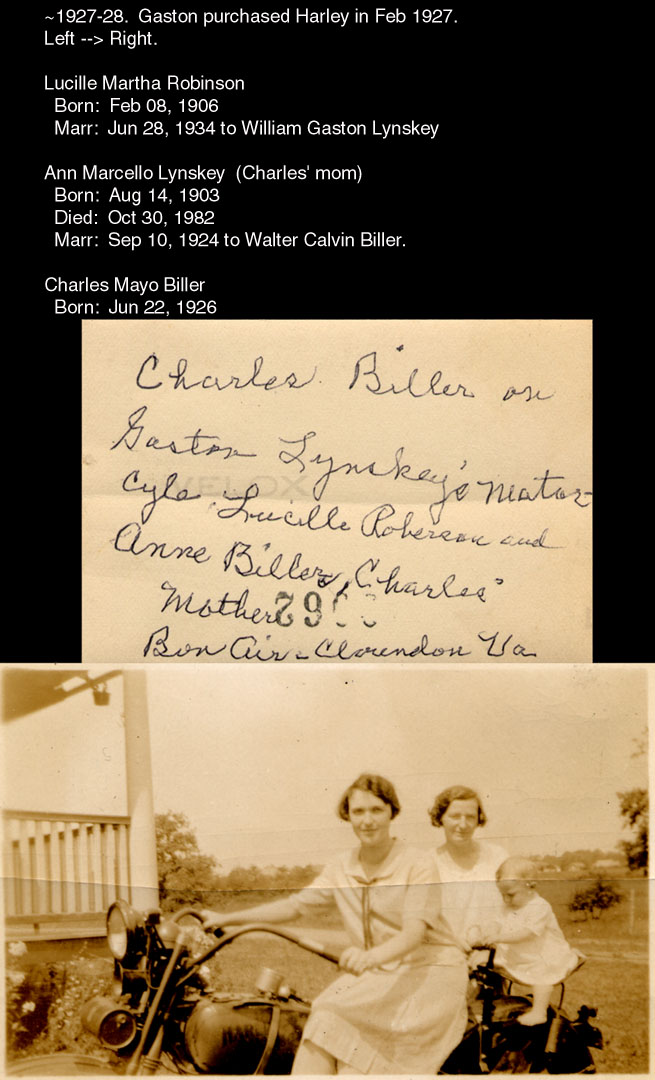 ~1927-28. Gaston purchased Harley in Feb 1927.
Left --> Right.
Lucille Martha Robinson
Born: Feb 08, 1906
Marr: Jun 28, 1934 to William Gaston Lynskey
Ann Marcello Lynskey (Charles' mom)
Born: Aug 14, 1903
Died: Oct 30, 1982
Marr: Sep 10, 1924 to Walter Calvin Biller.
Charles Mayo Biller
Born: Jun 22, 1926
Charles Biller on
Gaston Lynskey's Motor
VELOX
Cyle Lucille Roberson and
Anne Biller, Charles'
Mother
Bon Air - Clarendon Va